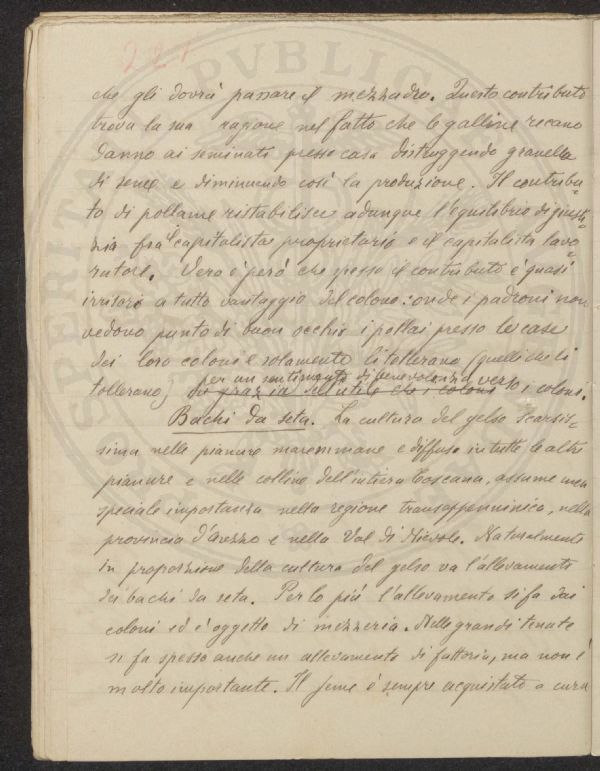 227
che gli dovrà passare il mezzadro. Questo contributo
trova la sua ragione nel fatto che le galline recano
danno ai seminati presso casa distruggendo granella
di seme e diminuendo così la produzione. Il contribu-
to di pollame ristabilisce adunque l'equilibrio di giusti-
zia fra il capitalista proprietario e il capitalista lavo-
ratore. Vero è però che spesso il contributo è quasi
irrisorio a tutto vantaggio del colono: onde i padroni non
vedono punto di buon occhio i pollai presso le case
dei loro coloni e solamente li tollerano (quelli che li
per un sentimento di benevolenza verso
tollerano) i coloni.
Bachi da seta. La cultura del gelso scarsis-
sima nelle pianure maremmane e diffusa in tutte le altre
pianure e nelle colline dell'intiera Toscana, assume una
speciale importanza nella regione transappenninica, nella
provincia d'Arezzo e nella Val di Nievole. Naturalmente
in proporzione della cultura del gelso va l'allevamento
dei bachi da seta. Per lo più l'allevamento si fa dai
coloni ed è oggetto di mezzeria. Nelle grandi tenute
si fa spesso anche un allevamento di fattoria, ma non è
molto importante. Il seme è sempre acquistato a cura